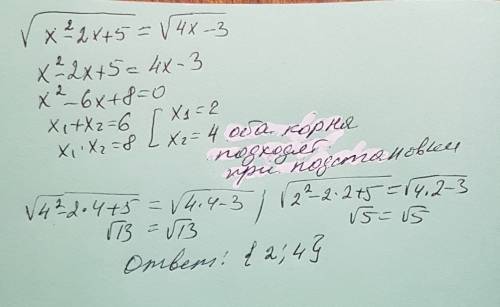 √(x² - 2x + 5) = √(4x - 3)
x² - 2x + 5 = 4x - 3
x² - 6x + 8 = 0
x₁ + x₂ = 6 [ x₁ = 2
x₁ · x₂ = 8 x₂ = 4 оба корня
подходят
при подстановки
√(4² - 2·4 + 5) = √(4·4 - 3) / √(2² - 2·2 + 5) = √(4·2 - 3)
√13 = √13 √5 = √5
Ответ: {2; 4}